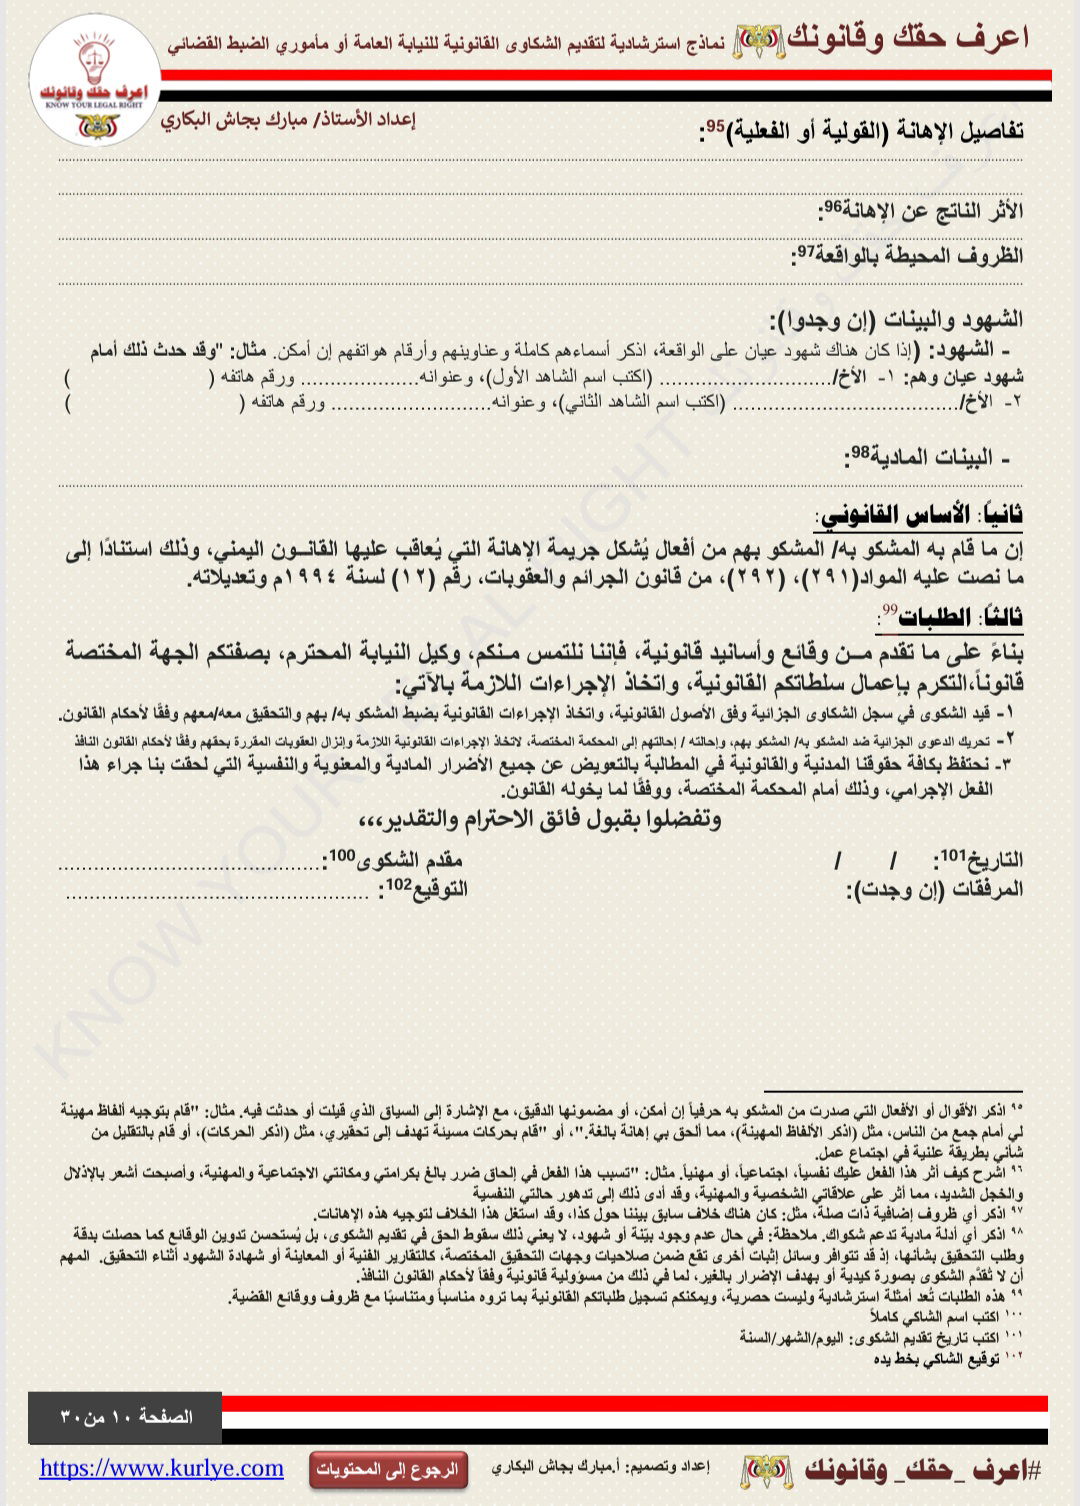 اعرف حقك وقانونك نماذج استرشادية لتقديم الشكاوى القانونية للنيابة العامة أو مأموري الضبط القضائي
اعرف حقك وقانونك
KNOW YOUR LEGAL RIGHT
إعداد الأستاذ/ مبارك بجاش البكاري
تفاصيل الإهانة (القولية أو الفعلية)95:
الأثر الناتج عن الإهانة96:
الظروف المحيطة بالواقعة97:
الشهود والبينات (إن وجدوا):
- الشهود: (إذا كان هناك شهود عيان على الواقعة، اذكر أسماءهم كاملة وعناوينهم وأرقام هواتفهم إن أمكن. مثال: "وقد حدث ذلك أمام
شهود عيان وهم: ١- الأخ/............................. (اكتب اسم الشاهد الأول)، وعنوانه.................... ورقم هاتفه ( )
٢- الأخ/...................................... (اكتب اسم الشاهد الثاني)، وعنوانه........................... ورقم هاتفه ( )
- البينات المادية98:
ثانياً: الأساس القانوني:
إن ما قام به المشكو به/ المشكو بهم من أفعال يُشكل جريمة الإهانة التي يُعاقب عليها القانــون اليمني، وذلك استنادًا إلى
ما نصت عليه المواد(٢٩١)، (٢٩٢)، من قانون الجرائم والعقوبات، رقم (١٢) لسنة ١٩٩٤م وتعديلاته.
ثالثاً: الطلبات99:
بناءً على ما تقدم مــن وقائع وأسانيد قانونية، فإننا نلتمس مـنكم، وكيل النيابة المحترم، بصفتكم الجهة المختصة
قانوناً،التكرم بإعمال سلطاتكم القانونية، واتخاذ الإجراءات اللازمة بالآتي:
١- قيد الشكوى في سجل الشكاوى الجزائية وفق الأصول القانونية، واتخاذ الإجراءات القانونية بضبط المشكو به/ بهم والتحقيق معه/معهم وفقًا لأحكام القانون.
٢- تحريك الدعوى الجزائية ضد المشكو به/ المشكو بهم، وإحالته / إحالتهم إلى المحكمة المختصة، لاتخاذ الإجراءات القانونية اللازمة وإنزال العقوبات المقررة بحقهم وفقًا لأحكام القانون النافذ
٣- نحتفظ بكافة حقوقنا المدنية والقانونية في المطالبة بالتعويض عن جميع الأضرار المادية والمعنوية والنفسية التي لحقت بنا جراء هذا
الفعل الإجرامي، وذلك أمام المحكمة المختصة، ووفقًا لما يخوله القانون.
وتفضلوا بقبول فائق الاحترام والتقدير،،،
التاريخ101: / / مقدم الشكوى100:...................................
المرفقات (إن وجدت): التوقيع102: .........................................
٩٥ اذكر الأقوال أو الأفعال التي صدرت من المشكو به حرفياً إن أمكن، أو مضمونها الدقيق، مع الإشارة إلى السياق الذي قيلت أو حدثت فيه. مثال: "قام بتوجيه ألفاظ مهينة
لي أمام جمع من الناس، مثل (اذكر الألفاظ المهينة)، مما ألحق بي إهانة بالغة."، أو "قام بحركات مسيئة تهدف إلى تحقيري، مثل (اذكر الحركات)، أو قام بالتقليل من
شأني بطريقة علنية في اجتماع عمل.
٩٦ اشرح كيف أثر هذا الفعل عليك نفسياً، اجتماعياً، أو مهنياً. مثال: "تسبب هذا الفعل في إلحاق ضرر بالغ بكرامتي ومكانتي الاجتماعية والمهنية، وأصبحت أشعر بالإذلال
والخجل الشديد، مما أثر على علاقاتي الشخصية والمهنية، وقد أدى ذلك إلى تدهور حالتي النفسية
٩٧ اذكر أي ظروف إضافية ذات صلة، مثل: كان هناك خلاف سابق بيننا حول كذا، وقد استغل هذا الخلاف لتوجيه هذه الإهانات.
٩٨ اذكر أي أدلة مادية تدعم شكواك. ملاحظة: في حال عدم وجود بيّنة أو شهود، لا يعني ذلك سقوط الحق في تقديم الشكوى، بل يُستحسن تدوين الوقائع كما حصلت بدقة
وطلب التحقيق بشأنها، إذ قد تتوافر وسائل إثبات أخرى تقع ضمن صلاحيات وجهات التحقيق المختصة، كالتقارير الفنية أو المعاينة أو شهادة الشهود أثناء التحقيق. المهم
أن لا تُقدَّم الشكوى بصورة كيدية أو بهدف الإضرار بالغير، لما في ذلك من مسؤولية قانونية وفقاً لأحكام القانون النافذ.
٩٩ هذه الطلبات تُعد أمثلة استرشادية وليست حصرية، ويمكنكم تسجيل طلباتكم القانونية بما تروه مناسباً ومتناسبًا مع ظروف ووقائع القضية.
١٠٠ اكتب اسم الشاكي كاملاً
١٠١ اكتب تاريخ تقديم الشكوى: اليوم/الشهر/السنة
١٠٢ توقيع الشاكي بخط يده
الصفحة ١٠ من٣٠
#اعرف _حقك_ وقانونك إعداد وتصميم: أ.مبارك بجاش البكاري الرجوع إلى المحتويات https://www.kurlye.com